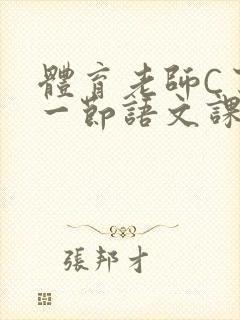 體育老師C
一節語文課
張邦才